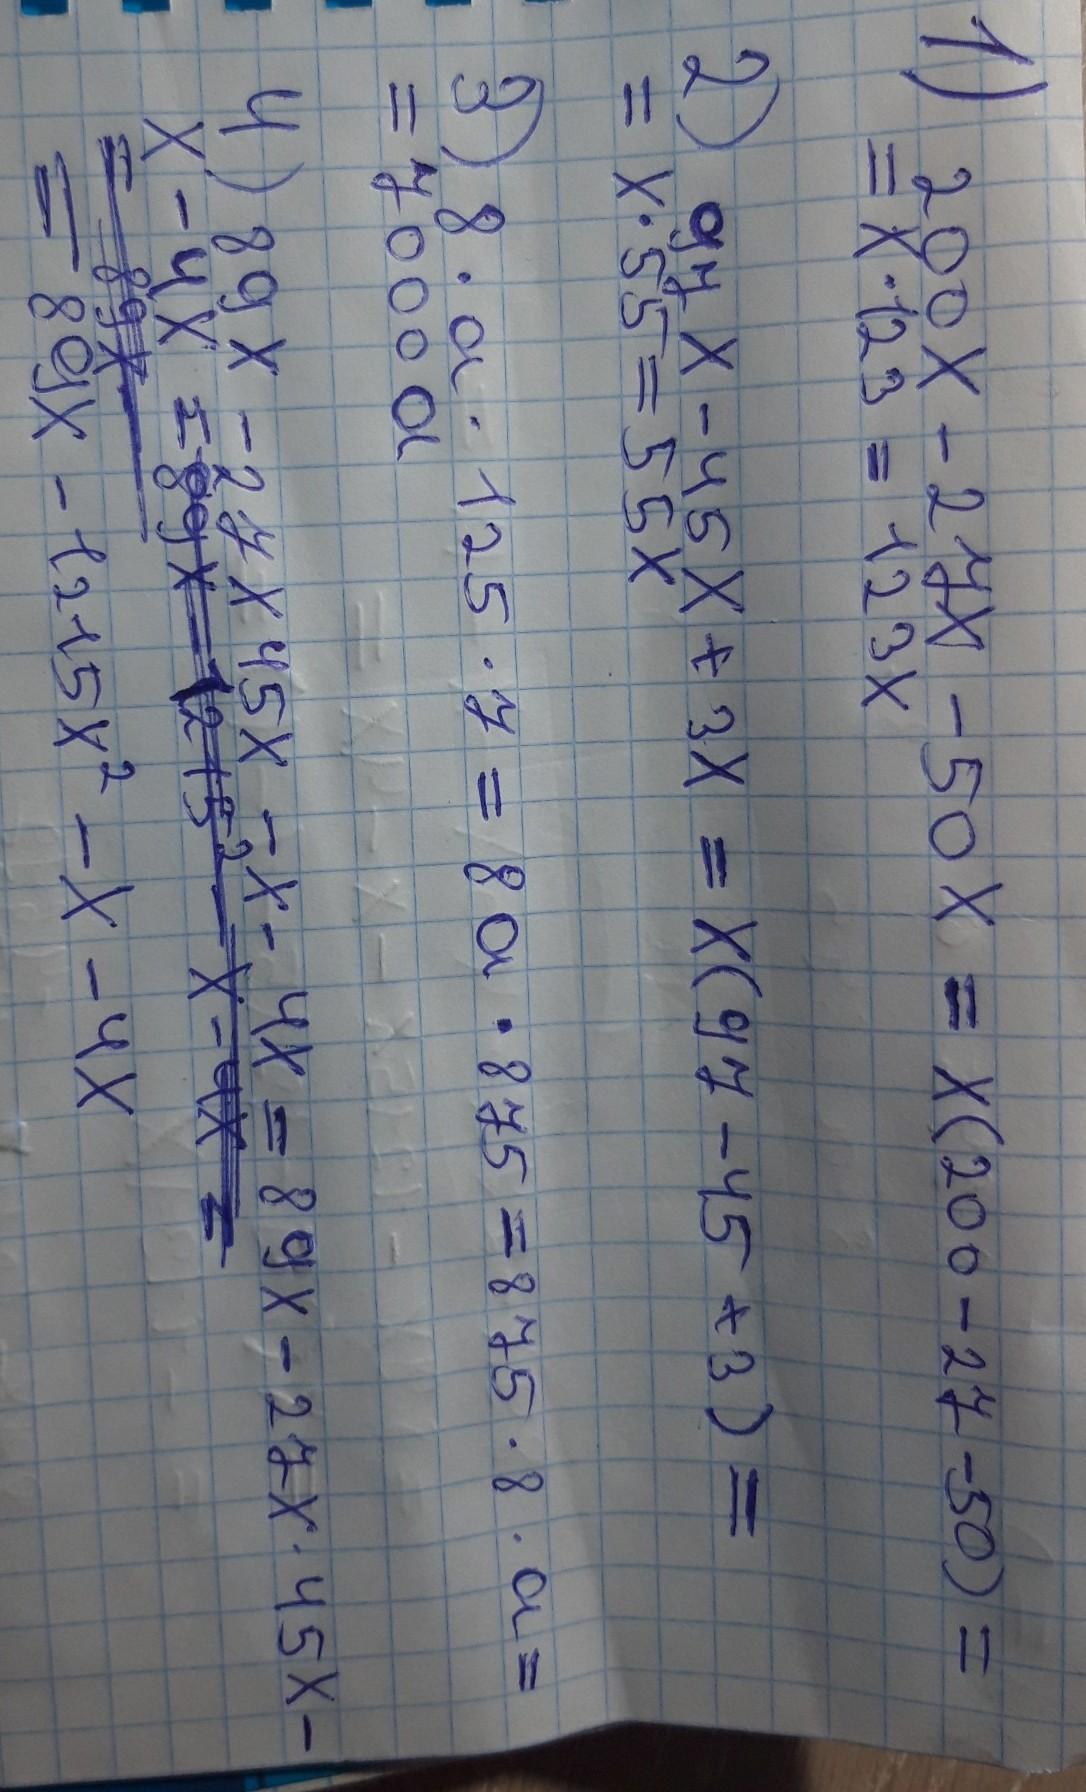 1) 200x - 27x - 50x = x(200 - 27 - 50) =
= x · 123 = 123x
2) 97x - 45x + 3x = x(97 - 45 + 3) =
= x · 55 = 55x
3) 8 · a · 125 · 7 = 8a · 875 = 875 · 8 · a =
= 7000a
4) 89x - 27x 45x - x - 4x = 89x - 27x · 45x -
x - 4x = 89x - 1215² - x - 4x =
= 89x
= 89x - 1215x² - x - 4x